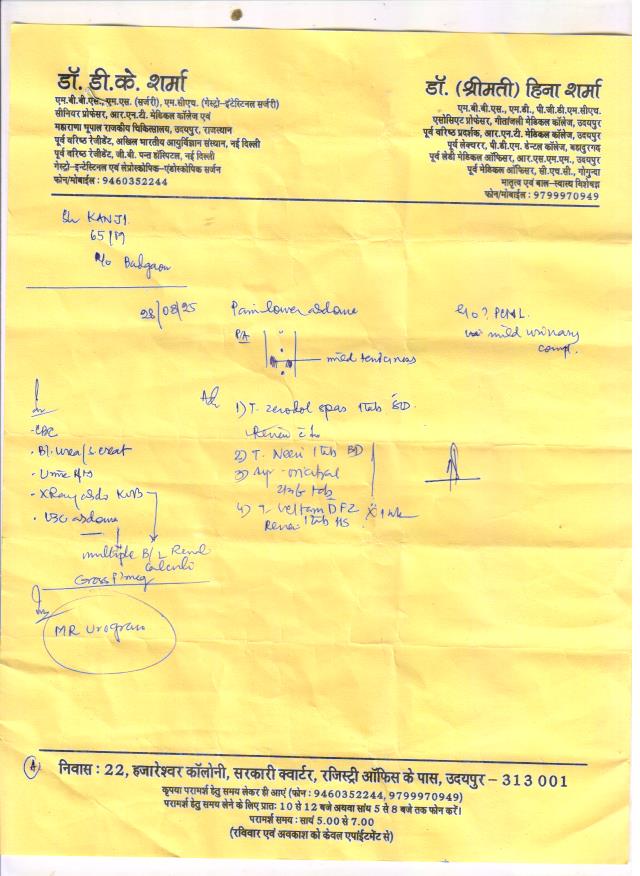 डॉ. डी.के. शर्मा
एम.बी.बी.एस., एम.एस. (सर्जरी), एम.सीएच. (गेस्ट्रो-इंटेस्टिनल सर्जरी)
सीनियर प्रोफेसर, आर.एन.टी. मेडिकल कॉलेज एवं
महाराणा भूपाल राजकीय चिकित्सालय, उदयपुर, राजस्थान
पूर्व वरिष्ठ रेजीडेंट, अखिल भारतीय आयुर्विज्ञान संस्थान, नई दिल्ली
पूर्व वरिष्ठ रेजीडेंट, जी.बी. पन्त हॉस्पिटल, नई दिल्ली
गेस्ट्रो-इन्टेस्टिनल एवं लेप्रोस्कोपिक-एंडोस्कोपिक सर्जन
फोन/मोबाईल : 9460352244
डॉ. (श्रीमती) हिना शर्मा
एम.बी.बी.एस., एम.डी., पी.जी.डी.एम.सीएच.
एसोसिएट प्रोफेसर, गीतांजली मेडिकल कॉलेज, उदयपुर
पूर्व वरिष्ठ प्रदर्शक, आर.एन.टी. मेडिकल कॉलेज, उदयपुर
पूर्व लेक्चरर, पी.डी.एम. डेन्टल कॉलेज, बहादुरगढ़
पूर्व लेडी मेडिकल ऑफिसर, आर.एस.एम.एम., उदयपुर
पूर्व मेडिकल ऑफिसर, सी.एच.सी., गोगुन्दा
मातृत्व एवं बाल-स्वास्थ्य विशेषज्ञ
फोन/मोबाईल : 9799970949
Sh KANJI
65/M
R/o Badgaon
28/08/25 Pain lower abdome
PCNL
mild urinary
compl.
P/A
mild tenderness
Adv
1) T. zerodol spas 1tab SD
2) T. Neeri 1tab BD
3) Syp
4) T. Veltam DFZ x 1 wk
1tab HS
Inv
- CBC
- Bl. urea/s. creat
- Urine R/M
- XRay abdo KUB
- USG abdome
multiple B/L Renal
calculi
Inv
MR Urogram
निवास : 22, हजारेश्वर कॉलोनी, सरकारी क्वार्टर, रजिस्ट्री ऑफिस के पास, उदयपुर – 313 001
कृपया परामर्श हेतु समय लेकर ही आएं (फोन : 9460352244, 9799970949)
परामर्श हेतु समय लेने के लिए प्रातः 10 से 12 बजे अथवा सायं 5 से 8 बजे तक फोन करें।
परामर्श समय : सायं 5.00 से 7.00
(रविवार एवं अवकाश को केवल एपांईटमेंट से)